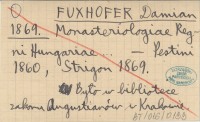 FUXHOFER Damian
1869. Monasteriologiae Reg-
ni Hungariae... — Pestini
1860, Strigon 1869.
Było w bibliotece
zakonu Augustianów w Krakowie